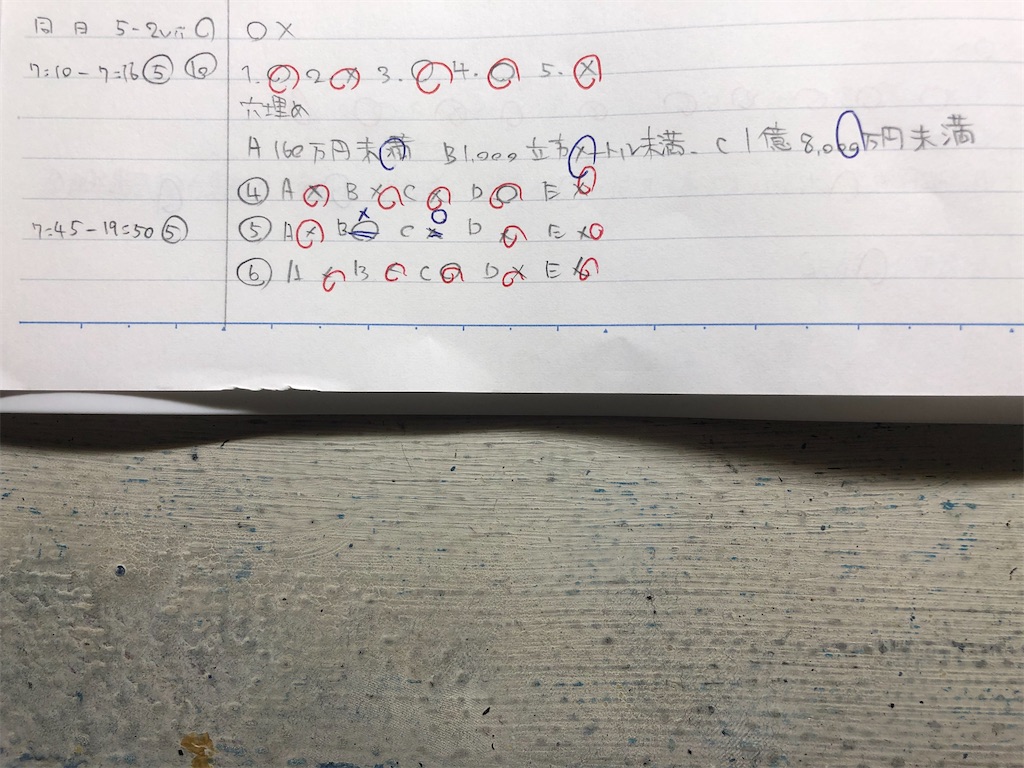 同日 5-2 ○ ○×
7:10-7:16 ⑤ 1. ○ 2 × 3. ○ 4. ○ 5. ×
穴埋め
A 160万円未満 B 1,000立方メートル未満、C 1億8,000万円未満
④ A × B × C ○ D ○ E ×
7:45-19:50 ⑤ ⑤ A × B × C ○ D × E ×
⑥ A × B C ○ D × E ×